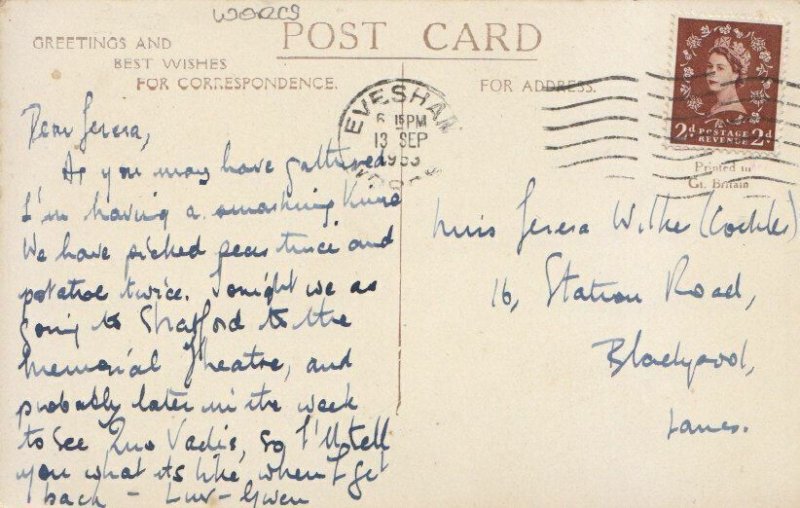 WORCS
POST CARD
GREETINGS AND
BEST WISHES
FOR CORRESPONDENCE.
FOR ADDRESS.
EVESHAM
6 15 PM
13 SEP
1953
WORCS
2d POSTAGE REVENUE 2d
Printed in
Gt. Britain
Dear Teresa,
As you may have gathered
I'm having a smashing
We have picked peas twice and
potatoe twice. Tonight we as
going to Stratford to the
Memorial Theatre, and
probably later in the week
to see Quo Vadis, so I'll tell
you what its like when I get
back - Luv - Gwen
Miss Teresa Wilke (Cockles)
16, Station Road,
Blackpool,
Lancs.